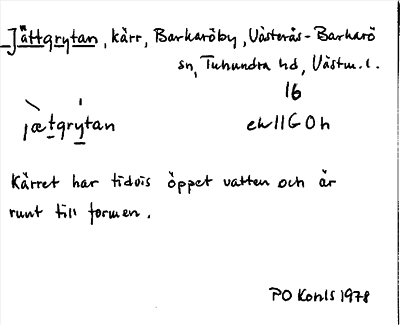 Jättgrytan, kärr, Barkaröby, Västerås-Barkarö
sn, Tuhundra hd, Västm. l.
16
jætgrytan ek11G0h
Kärret har tidvis öppet vatten och är
runt till formen.
PO Kohls 1978